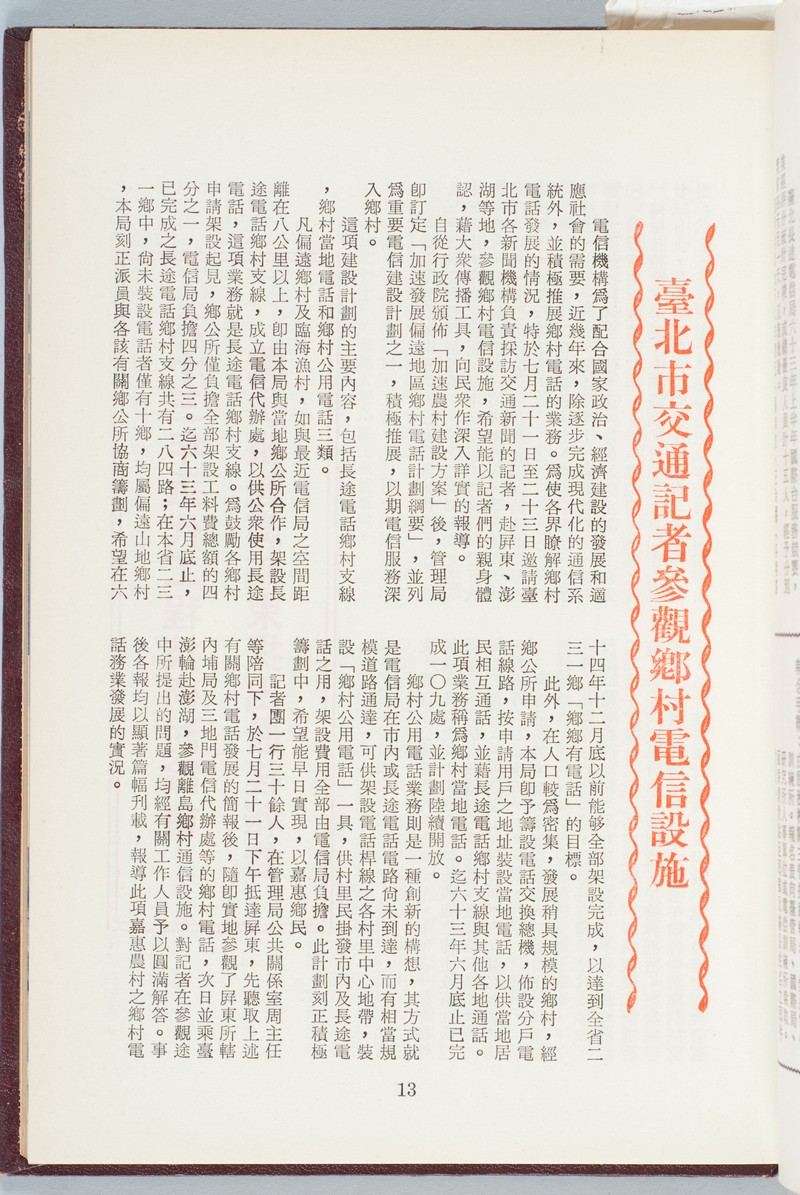 臺北市交通記者參觀鄉村電信設施
電信機構爲了配合國家政治、經濟建設的發展和適
應社會的需要，近幾年來，除逐步完成現代化的通信系
統外，並積極推展鄉村電話的業務。爲使各界瞭解鄉村
電話發展的情況，特於七月二十一日至二十三日邀請臺
北市各新聞機構負責採訪交通新聞的記者，赴屏東、澎
湖等地，參觀鄉村電信設施，希望能以記者們的親身體
認，藉大衆傳播工具，向民衆作深入詳實的報導。
自從行政院頒佈「加速農村建設方案」後，管理局
卽訂定「加速發展偏遠地區鄉村電話計劃綱要」，並列
爲重要電信建設計劃之一，積極推展，以期電信服務深
入鄉村。
這項建設計劃的主要內容，包括長途電話鄉村支線
，鄉村當地電話和鄉村公用電話三類。
凡偏遠鄉村及臨海漁村，如與最近電信局之空間距
離在八公里以上，卽由本局與當地鄉公所合作，架設長
途電話鄉村支線，成立電信代辦處，以供公衆使用長途
電話，這項業務就是長途電話鄉村支線。爲鼓勵各鄉村
申請架設起見，鄉公所僅負擔全部架設工料費總額的四
分之一，電信局負擔四分之三。迄六十三年六月底止，
已完成之長途電話鄉村支線共有二八四路；在本省二三
一鄉中，尙未裝設電話者僅有十鄉，均屬偏遠山地鄉村
，本局刻正派員與各該有關鄉公所協商籌劃，希望在六
十四年十二月底以前能够全部架設完成，以達到全省二
三一鄉「鄉鄉有電話」的目標。
此外，在人口較爲密集，發展稍具規模的鄉村，經
鄉公所申請，本局卽予籌設電話交換總機，佈設分戶電
話線路，按申請用戶之地址裝設當地電話，以供當地居
民相互通話，並藉長途電話鄉村支線與其他各地通話。
此項業務稱爲鄉村當地電話。迄六十三年六月底止已完
成一〇九處，並計劃陸續開放。
鄉村公用電話業務則是一種創新的構想，其方式就
是電信局在市內或長途電話電路尙未到達，而有相當規
模道路通達，可供架設電話桿線之各村里中心地帶，裝
設「鄉村公用電話」一具，供村里民掛發市內及長途電
話之用，架設費用全部由電信局負擔。此計劃刻正積極
籌劃中，希望能早日實現，以嘉惠鄉民。
記者團一行三十餘人，在管理局公共關係室周主任
等陪同下，於七月二十一日下午抵達屏東，先聽取上述
有關鄉村電話發展的簡報後，隨卽實地參觀了屏東所轄
內埔局及三地門電信代辦處等的鄉村電話，次日並乘臺
澎輪赴澎湖，參觀離島鄉村通信設施。對記者在參觀途
中所提出的問題，均經有關工作人員予以圓滿解答。事
後各報均以顯著篇幅刋載，報導此項嘉惠農村之鄉村電
話務業發展的實況。
13